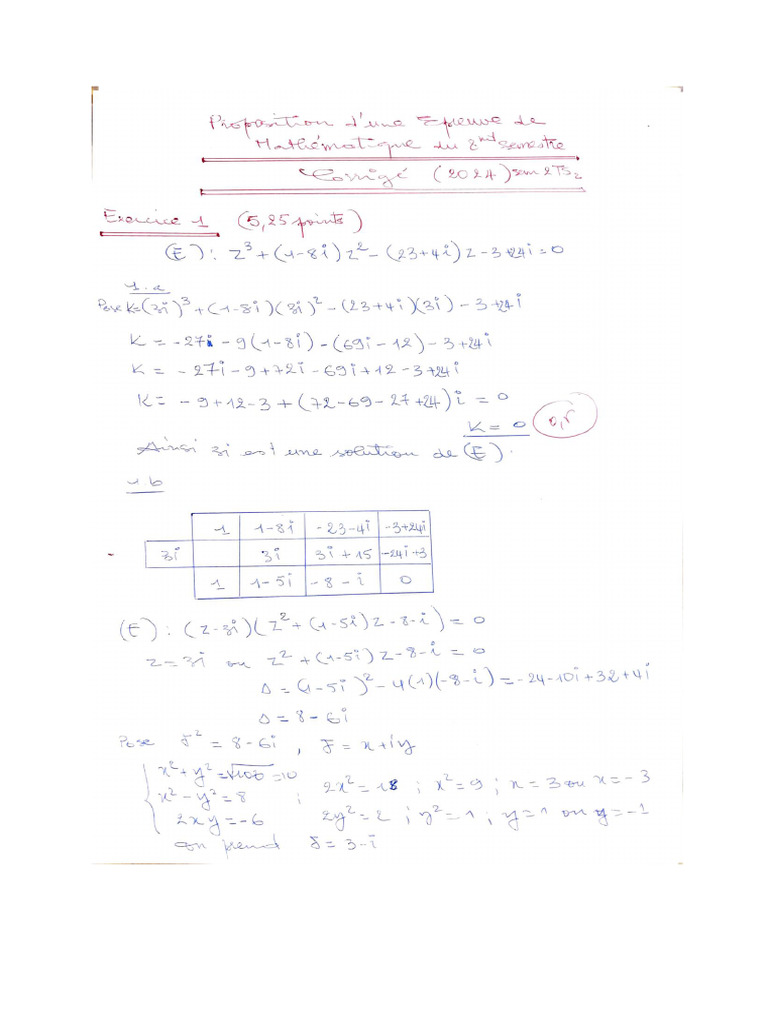 Proposition d'une Epreuve de
Mathématique du 2nd semestre
Corrigé (2024) sem 2TS2
Exercice 1 (5,25 points)
(E) : Z³ + (1-8i) Z² - (23+4i) Z - 3+24i = 0
1.a
Pose K = (3i)³ + (1-8i)(3i)² - (23+4i)(3i) - 3+24i
K = -27i - 9(1-8i) - (69i - 12) - 3+24i
K = - 27i - 9 + 72i - 69i + 12 - 3+24i
K = - 9 + 12 - 3 + (72 - 69 - 27 + 24) i = 0
K = 0 0,5
Ainsi 3i est une solution de (E).
1.b
1 1-8i -23-4i -3+24i
3i 3i 3i + 15 -24i+3
1 1-5i -8-i 0
(E) : (Z-3i)(Z² + (1-5i) Z - 8 - i) = 0
Z = 3i ou Z² + (1-5i) Z - 8 - i = 0
Δ = (1-5i)² - 4(1)(-8-i) = -24-10i + 32 + 4i
Δ = 8 - 6i
Pose δ² = 8-6i , δ = x+iy
x² + y² = √100 = 10
x² - y² = 8 ; 2x² = 18 ; x² = 9 ; x = 3 ou x = -3
2xy = -6 2y² = 2 ; y² = 1 ; y = 1 ou y = -1
on prend δ = 3-i